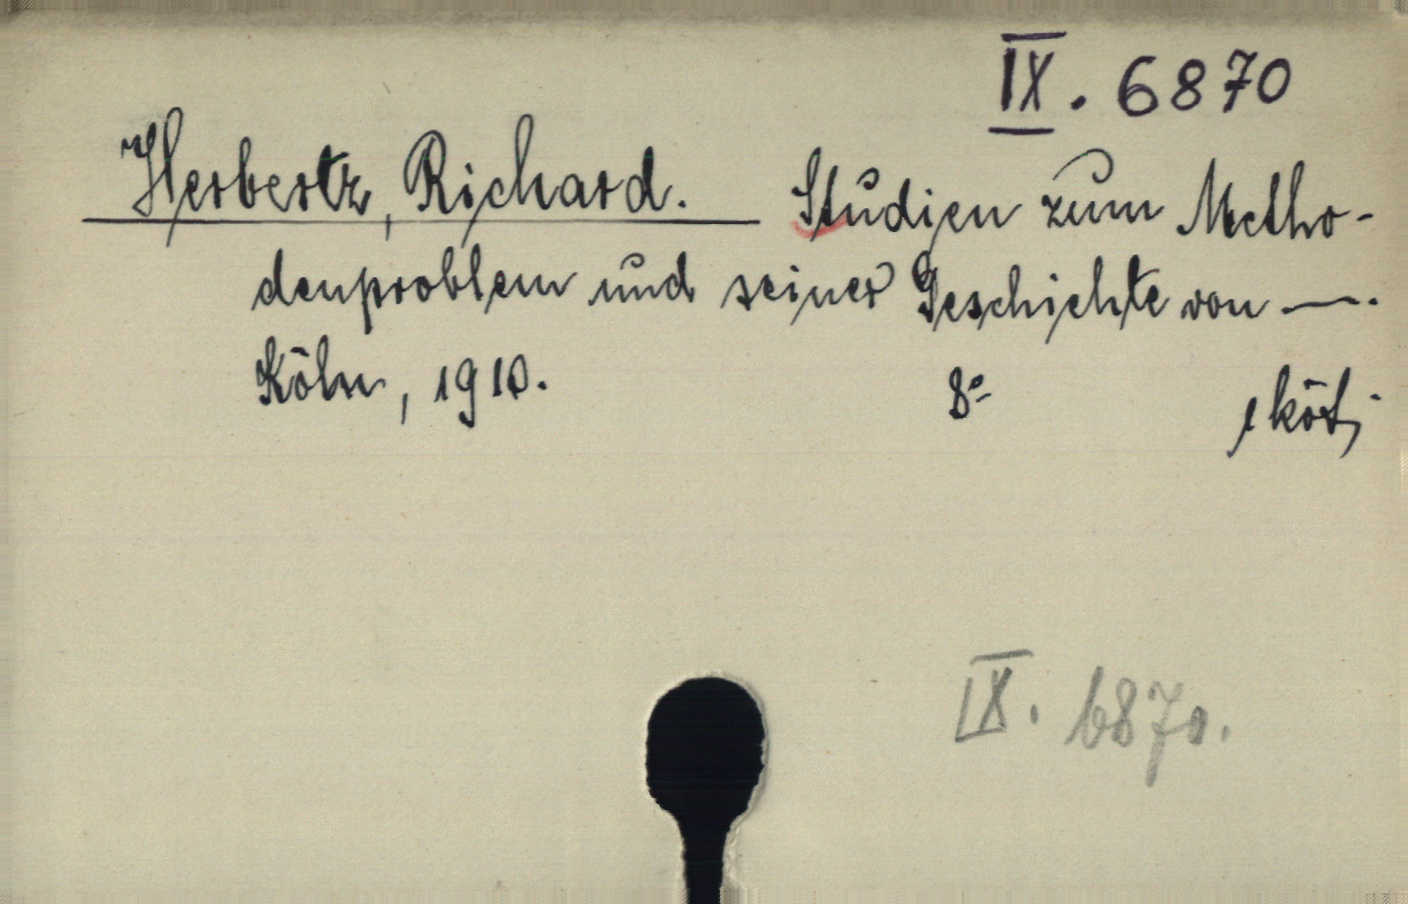 IX. 6870
Herbertz, Richard. Studien zum Metho-
denproblem und seiner Geschichte von —.
Köln, 1910. 8° 1 köt.
IX. 6870.